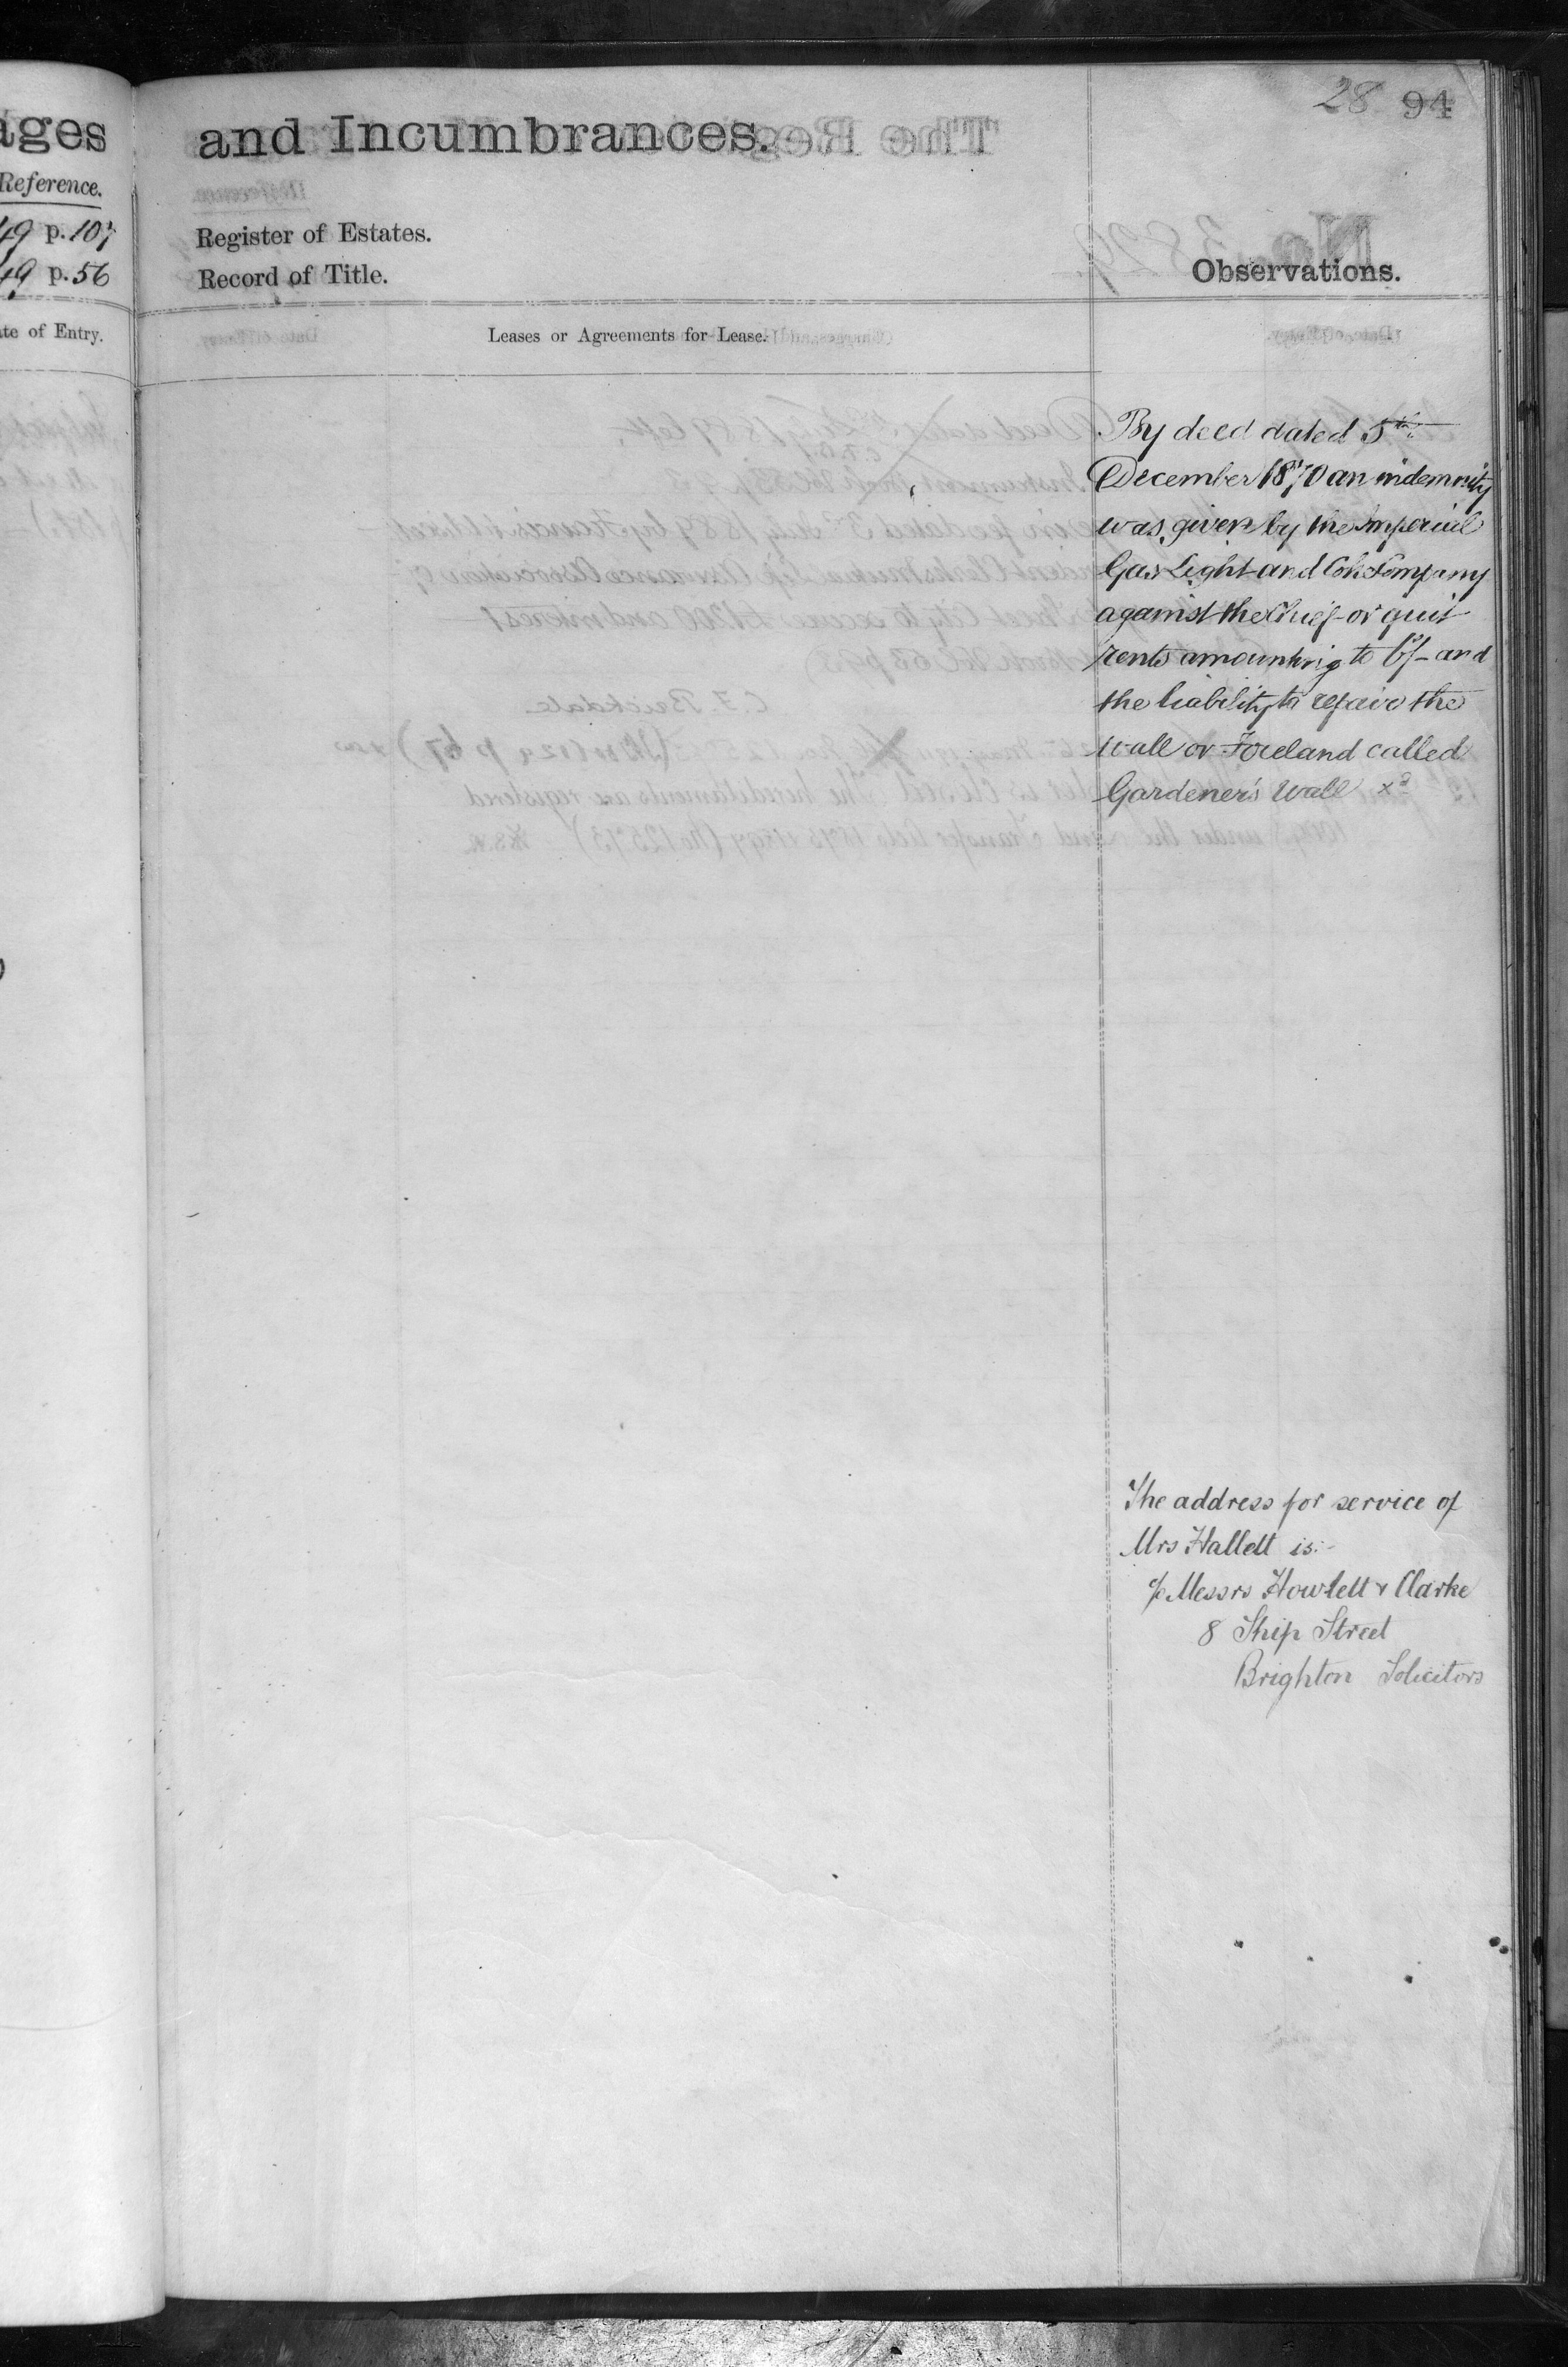 ages
Reference.
49 p. 107
49 p. 56
ate of Entry.
28 94
and Incumbrances.
Register of Estates.
Record of Title.
Observations.
Leases or Agreements for Lease.
By deed dated 5th
December 1870 an indemnity
was given by the Imperial
Gas Light and Coke Company
against the Chief or quit
rents amounting to 6/- and
the liability to repair the
wall or Foreland called
Gardener's Wall xd
The address for service of
Mrs Hallett is:-
c/o Messrs Howlett & Clarke
8 Ship Street
Brighton Solicitors